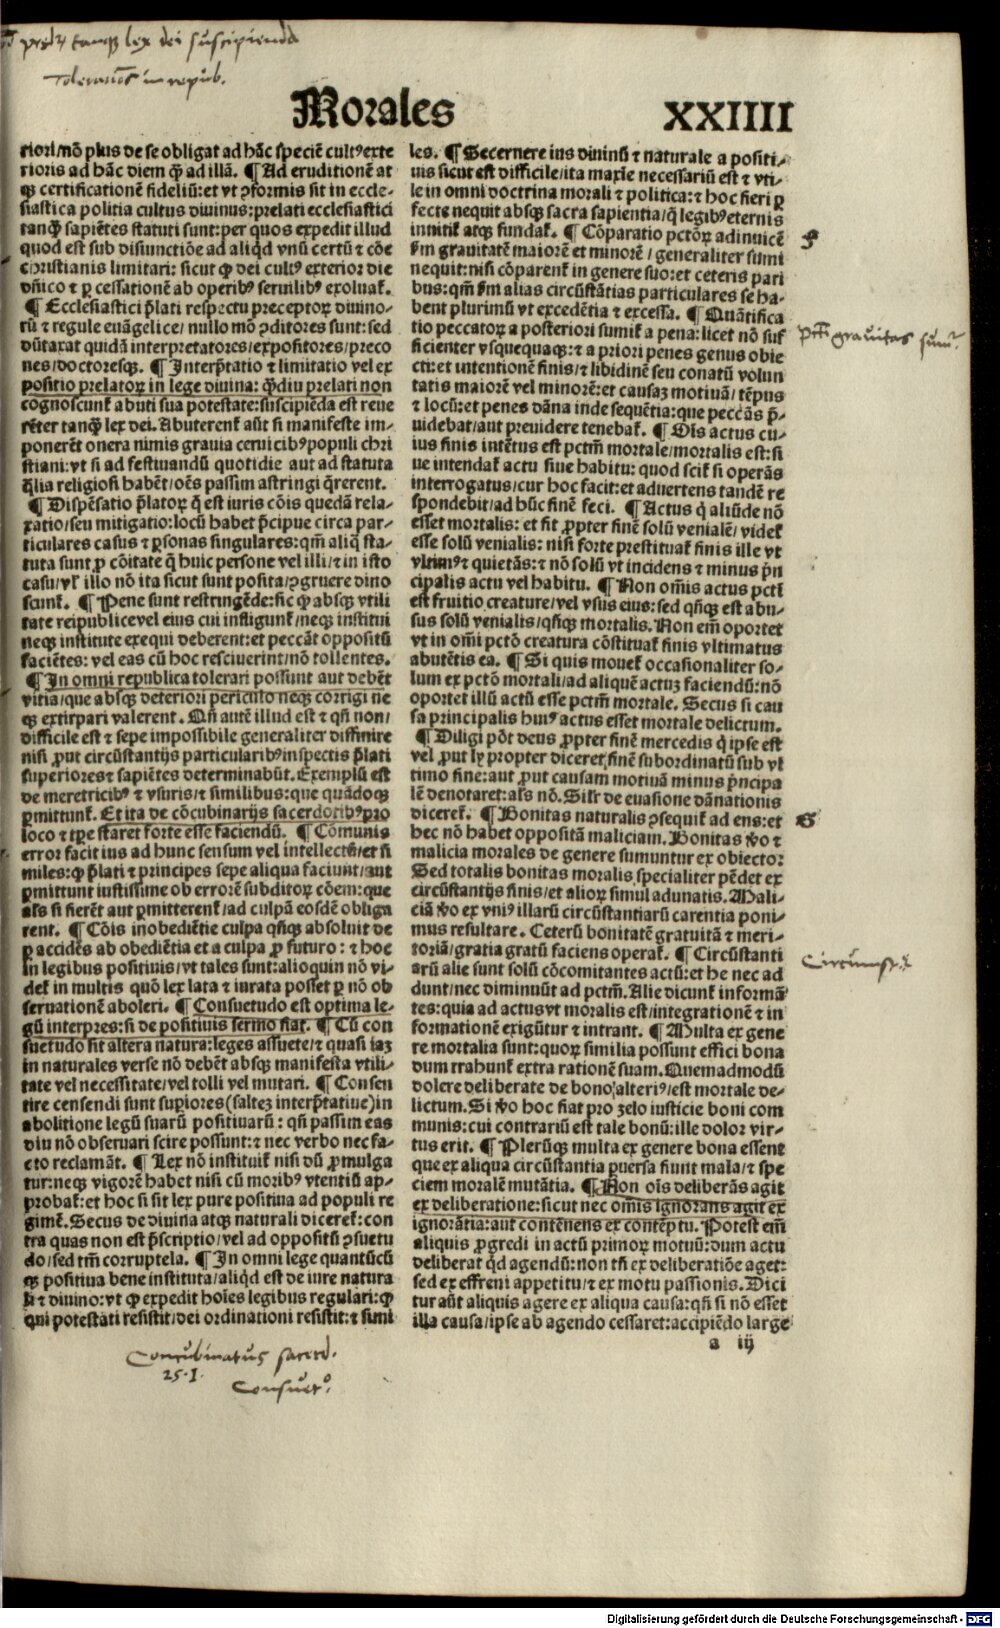 pred' tanq lex dei suscipienda
Tolerations in repub.
Morales XXIIII
riori/nō plus de se obligat ad hāc speciē cultꝰexte
rioris ad hāc diem ꝙ̄ ad illā. ¶ Ad eruditionē at
qꝫ certificationē fideliū:et vt ꝯformis sit in eccle-
siastica politia cultus diuinus:prelati ecclesiastici
tanꝙ̄ sapiētes statuti sunt:per quos expedit illud
quod est sub disiunctiōe ad aliqd vnū certū ⁊ cōe
christianis limitari: sicut ꝙ dei cultꝰ exterior die
dn̄ico ⁊ ꝑ cessationē ab operibꝰ seruilibꝰ exoluat̄.
¶ Ecclesiastici p̄lati respectu preceptoꝝ diuino-
rū ⁊ regule euāgelice/nullo mō ꝯditores sunt:sed
dūtaxat quidā interpretatores/expositores/preco
nes/doctoresqꝫ. ¶ Interp̄tatio ⁊ limitatio vel ex
positio prelatoꝝ in lege diuina: ꝙ̄diu prelati non
cognoscunt̄ abuti sua potestate:suscipiēda est reue
rēter tanꝙ̄ lex dei. Abuterent̄ aūt si manifeste im-
ponerēt onera nimis grauia ceruicibꝰpopuli chri
stiani:vt si ad festiuandū quotidie aut ad statuta
q̄lia religiosi habēt/oēs passim astringi q̄rerent.
¶ Dispēsatio p̄latoꝝ q̄ est iuris cōis quedā rela-
xatio/seu mitigatio:locū habet p̄cipue circa par-
ticulares casus ⁊ ꝑsonas singulares:qm̄ aliq̄ sta-
tuta sunt ꝓ cōitate q̄ huic persone vel illi/⁊ in isto
casu/vl' illo nō ita sicut sunt posita/ꝯgruere dino
scunt̄. ¶ Pene sunt restringēde:sic ꝙ absqꝫ vtili
tate reipublicevel eius cui infligunt̄/neqꝫ institui
neqꝫ institute exequi deberent:et peccāt oppositū
faciētes: vel eas cū hoc resciuerint/nō tollentes.
¶ In omni republica tolerari possunt aut debēt
vitia/que absqꝫ deteriori periculo neqꝫ corrigi ne
qꝫ extirpari valerent. Qn̄ autē illud est ⁊ qn̄ non/
difficile est ⁊ sepe impossibile generaliter diffinire
nisi ꝓut circūstantijs particularibꝰinspectis p̄lati
superiores⁊ sapiētes determinabūt. Exemplū est
de meretricibꝰ ⁊ vsuris/⁊ similibus:que quādoqꝫ
ꝑmittunt̄. Et ita de cōcubinarijs sacerdotibꝰꝓ
loco ⁊ tꝑe staret forte esse faciendū. ¶ Cōmunis
error facit ius ad hunc sensum vel intellectū/et si
miles:ꝙ p̄lati ⁊ principes sepe aliqua faciunt/aut
ꝑmittunt iustissime ob errorē subditoꝝ cōem:que
als si fierēt aut ꝑmitterent̄/ad culpā eosdē obliga
rent. ¶ Cōis inobediētie culpa qn̄qꝫ absoluit de
ꝑ accidēs ab obediētia et a culpa ꝓ futuro: ⁊ hoc
in legibus positiuis/vt tales sunt:alioquin nō vi-
det̄ in multis quō lex lata ⁊ iurata posset ꝑ nō ob
seruationē aboleri. ¶ Consuetudo est optima le-
gū interpres:si de positiuis sermo fiat. ¶ Cū con
suetudo sit altera natura:leges assuete/⁊ quasi iaꝫ
in naturales verse nō debēt absqꝫ manifesta vtili-
tate vel necessitate/vel tolli vel mutari. ¶ Consen
tire censendi sunt suꝑiores(salteꝫ interp̄tatiue)in
abolitione legū suarū positiuarū: qn̄ passim eas
diu nō obseruari scire possunt:⁊ nec verbo nec fa-
cto reclamāt. ¶ Lex nō instituit̄ nisi dū ꝓmulga
tur:neqꝫ vigorē habet nisi cū moribꝰ vtentiū ap-
probat̄:et hoc si sit lex pure positiua ad populi re
gimē. Secus de diuina atqꝫ naturali diceret̄:con
tra quas non est p̄scriptio/vel ad oppositū ꝯsuetu
do/sed tm̄ corruptela. ¶ In omni lege quantūcū
qꝫ positiua bene instituta/aliqd est de iure natura
li ⁊ diuino:vt ꝙ expedit hoīes legibus regulari:ꝙ
qui potestati resistit/dei ordinationi resistit:⁊ simi
les. ¶ Secernere ius diuinū ⁊ naturale a positi-
uis sicut est difficile/ita maxīe necessariū est ⁊ vti-
le in omni doctrina morali ⁊ politica:⁊ hoc fieri ꝑ
fecte nequit absqꝫ sacra sapientia/q̄ legibꝰeternis
innitit̄ atqꝫ fundat̄. ¶ Cōparatio pctōꝝ adinuicē
ẜm grauitatē maiorē et minorē/generaliter sumi
nequit:nisi cōparent̄ in genere suo:et ceteris pari
bus:qm̄ ẜm alias circūstātias particulares se ha-
bent plurimū vt excedētia ⁊ excessa. ¶ Quātifica
tio peccatoꝝ a posteriori sumit̄ a pena:licet nō suf
ficienter vsquequaqꝫ:⁊ a priori penes genus obie
cti:et intentionē finis/⁊ libidinē seu conatū volun
tatis maiorē vel minorē:et causaꝫ motiuā/tēpus
⁊ locū:et penes dāna inde sequētia:que peccās p̄-
uidebat/aut preuidere tenebat̄. ¶ Ois actus cu-
ius finis intētus est pctm̄ mortale/mortalis est:si
ue intendat̄ actu siue habitu: quod scit̄ si operās
interrogatus/cur hoc facit:et aduertens tandē re
spondebit/ad hūc finē feci. ¶ Actus q̄ aliūde nō
esset mortalis: et fit ꝓpter finē solū venialē/videt̄
esse solū venialis: nisi forte prestituat̄ finis ille vt
vltimꝰ⁊ quietās:⁊ nō solū vt incidens ⁊ minus p̄n
cipalis actu vel habitu. ¶ Non om̄is actus pcti
est fruitio creature/vel vsus eius:sed qn̄qꝫ est abu-
sus solū venialis/qn̄qꝫ mortalis. Non em̄ oportet
vt in om̄i pctō creatura cōstituat̄ finis vltimatus
abutētis ea. ¶ Si quis mouet̄ occasionaliter so-
lum ex pctō mortali/ad aliquē actuꝫ faciendū:nō
oportet illū actū esse pctm̄ mortale. Secus si cau
sa principalis huiꝰ actus esset mortale delictum.
¶ Diligi pōt deus ꝓpter finē mercedis q̄ ipse est
vel ꝓut ly propter diceret finē subordinatū sub vl
timo fine:aut ꝓut causam motiuā minus p̄ncipa
lē denotaret:als nō. Silr de euasione dānationis
diceret̄. ¶ Bonitas naturalis ꝯsequit̄ ad ens:et
hec nō habet oppositā maliciam. Bonitas ꝟo ⁊
malicia morales de genere sumuntur ex obiecto:
Sed totalis bonitas moralis specialiter pēdet ex
circūstantijs finis/et alioꝝ simul adunatis. Mali-
ciā ꝟo ex vniꝰ illarū circūstantiarū carentia poni-
mus resultare. Ceterū bonitatē gratuitā ⁊ meri-
toriā/gratia gratū faciens operat̄. ¶ Circūstanti
arū alie sunt solū cōcomitantes actū:et he nec ad
dunt/nec diminuūt ad pctm̄. Alie dicunt̄ informā
tes:quia ad actusvt moralis est/integrationē ⁊ in
formationē exigūtur ⁊ intrant. ¶ Multa ex gene
re mortalia sunt:quoꝝ similia possunt effici bona
dum trahunt̄ extra rationē suam. Quemadmodū
dolere deliberate de bono alteriꝰ/est mortale de-
lictum. Si ꝟo hoc fiat pro zelo iusticie boni com
munis:cui contrariū est tale bonū:ille doloꝛ vir-
tus erit. ¶ Plerūqꝫ multa ex genere bona essent
que ex aliqua circūstantia ꝑuersa fiunt mala/⁊ spe
ciem moralē mutātia. ¶ Non oīs deliberās agit
ex deliberatione:sicut nec om̄is ignorans agit ex
ignorātia:aut contēnens ex contēptu. Potest em̄
aliquis ꝓgredi in actū primoꝝ motuū:dum actu
deliberat qd agendū:non tn̄ ex deliberatiōe aget:
sed ex effreni appetitu/⁊ ex motu passionis. Dici
tur aūt aliquis agere ex aliqua causa:qn̄ si nō esset
illa causa/ipse ab agendo cessaret:accipiēdo large
a iij
F
gravitas
G
Circumst.
Concubinatus sacerd.
25.I.
Consuet°.
Digitalisierung gefördert durch die Deutsche Forschungsgemeinschaft - DFG